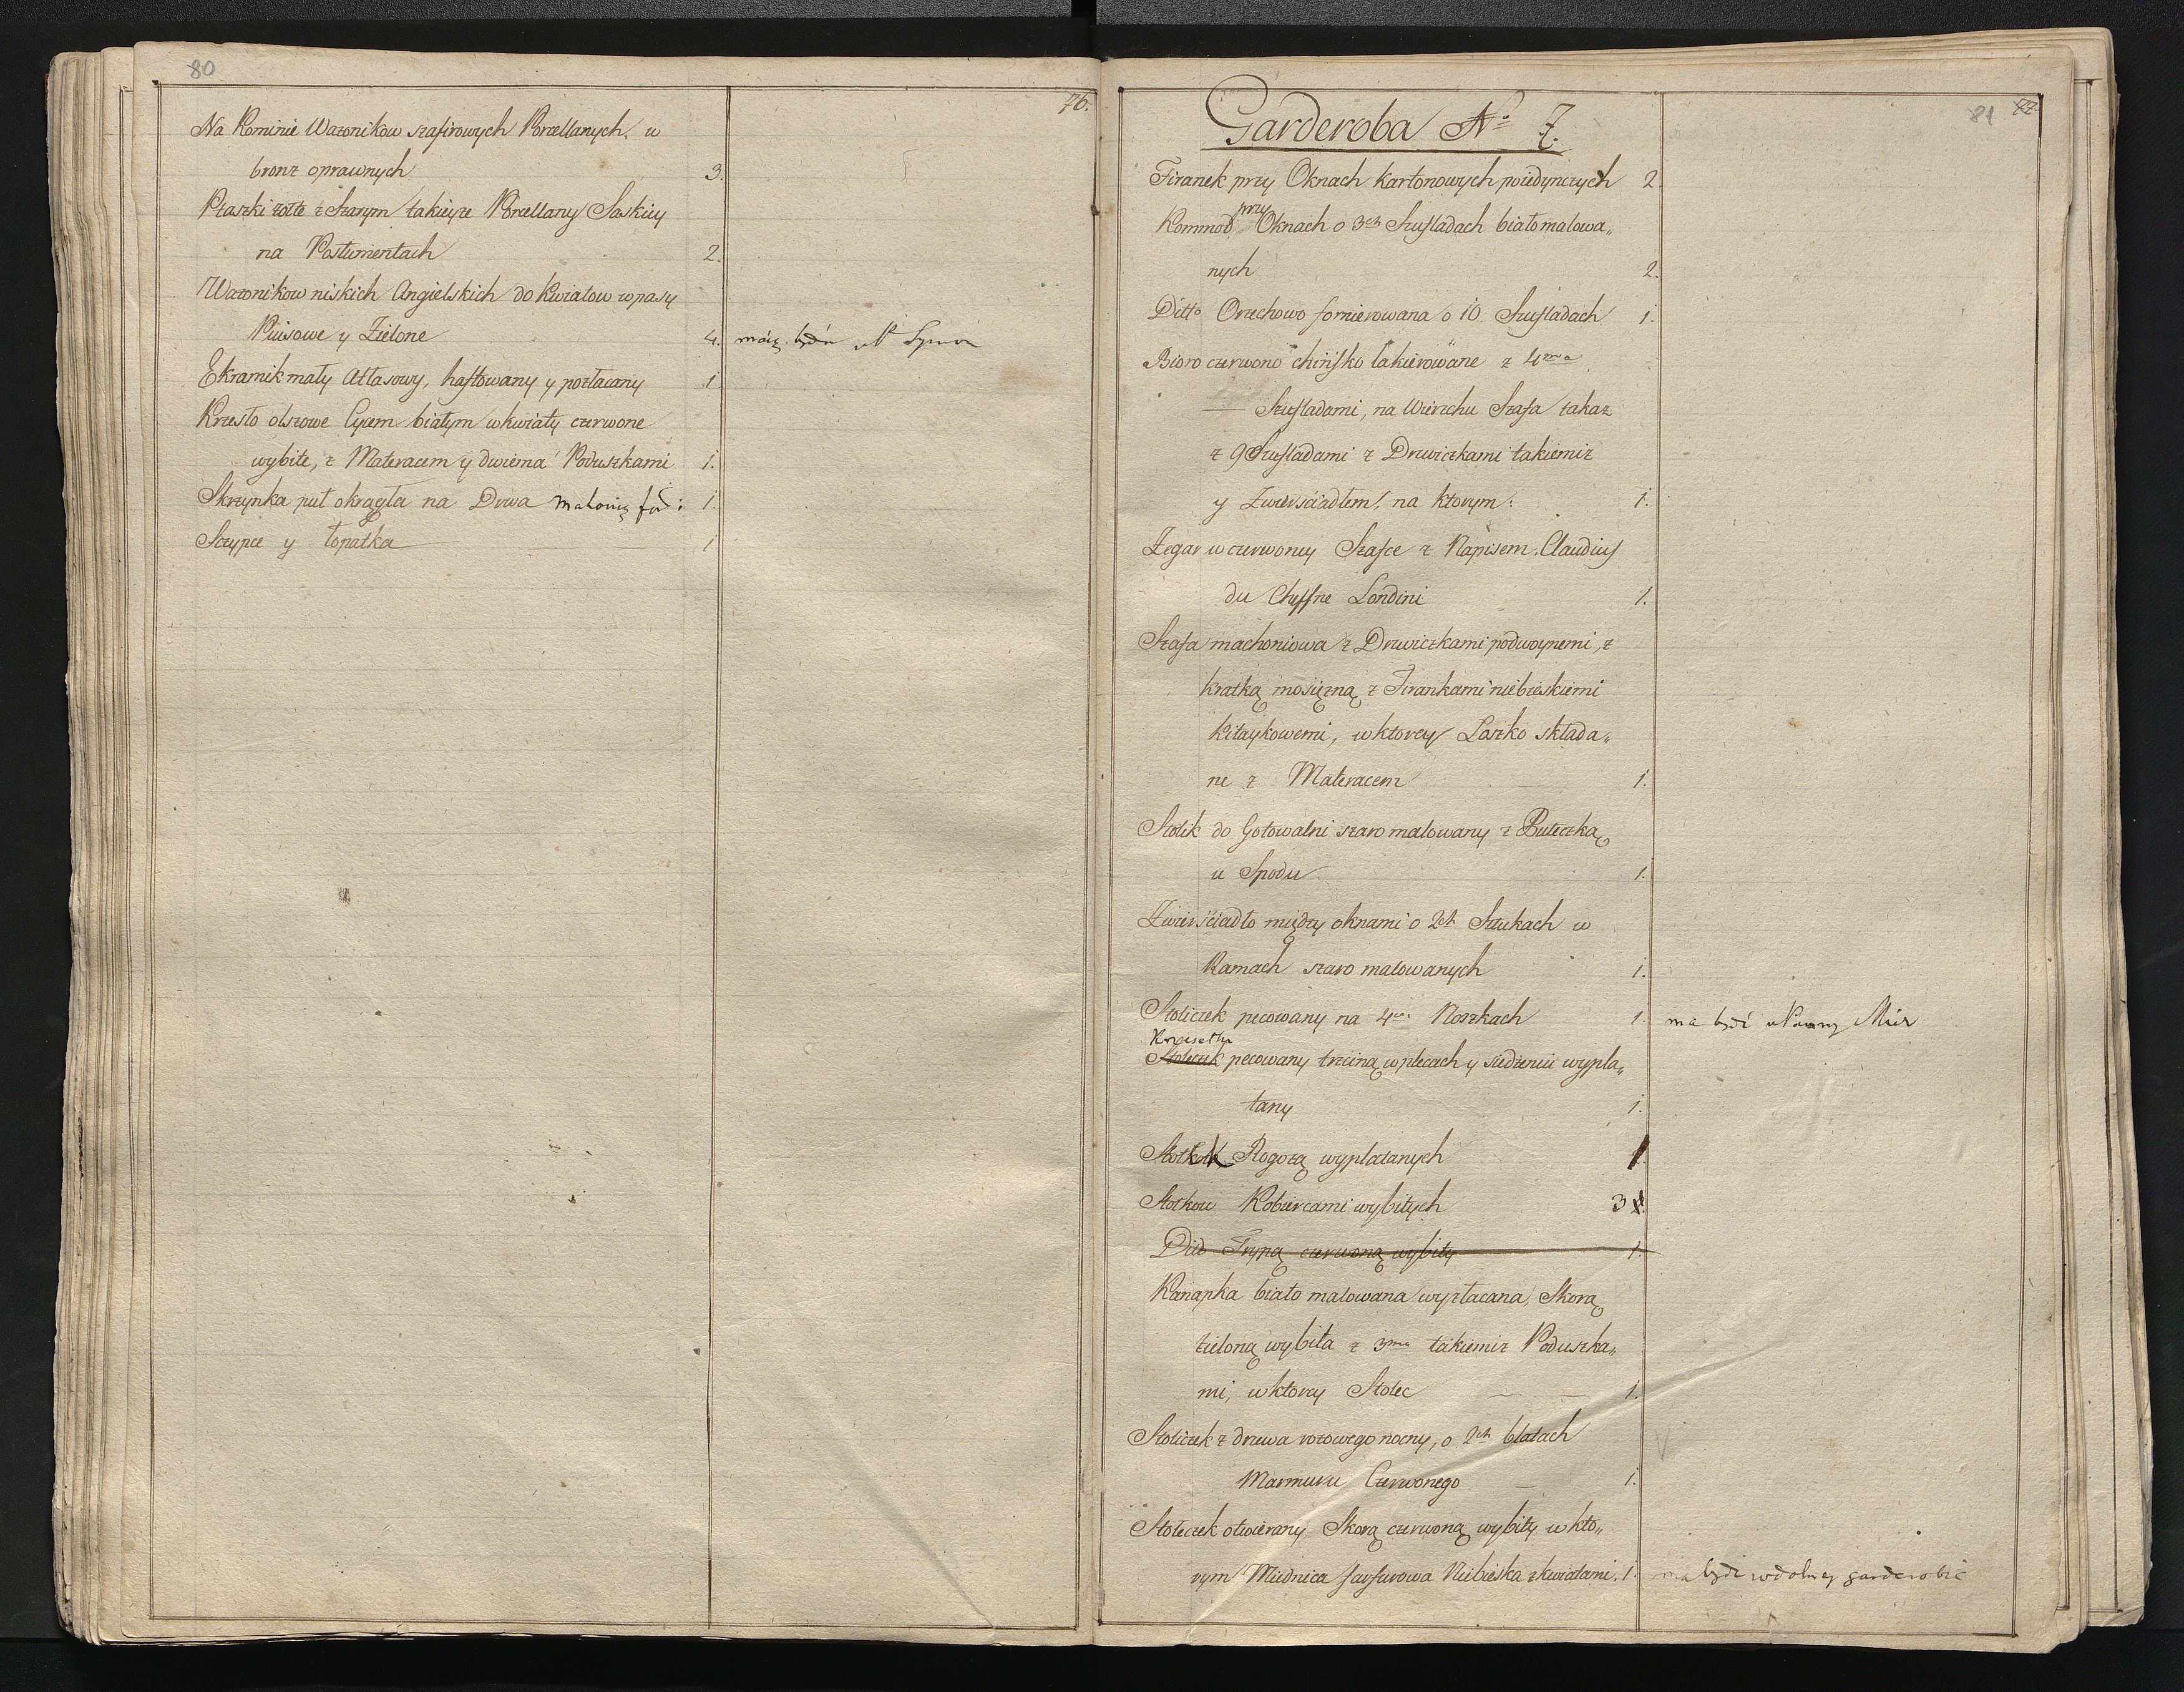 80
76.
Na Kominie Wazonikow szafirowych Porcellanych. w
bronz oprawnych 3.
Ptaszki żołte z Szarym takieyże Porcellany Saskiey
na Postumentach 2.
Wazonikow niskich Angielskich do kwiatow w pasy
Piusowe y Zielone 4. maią bydź
Ekramik mały Atłasowy, haftowany y pozłacany 1
Krzesło olszowe Cycem białym w kwiaty czerwone
wybite, z Materacem y dwiema Poduszkami 1.
Skrzynka puł okrągła na Drwa 1.
Szczypce y łopatka 1
81 77.
Garderoba No. 7.
Firanek przy Oknach Kartonowych poiedynczych 2
Kommod przy Oknach o 3ch Szufladach biało malowa„
nych 2.
Ditto Orzechowo fornierowana o 10. Szufladach 1.
Bioro czerwono chińsko lakierowane z 4ma
— Szufladami, na Wierzchu Szafa takaz
z 9 Szufladami z Drzwiczkami takiemiz
y Zwierściadłem, na ktorym: 1.
Zegar w czerwoney Szafce z Napisem. Claudius
du Chesne Londini 1.
Szafa machoniowa z Drzwiczkami podwoynemi, z
kratką mosiężną z Firankami niebieskiemi
kitaykowemi, w ktorey Łoszko składa„
ne z Materacem 1.
Stolik do Gotowalni szaro malowany z Puteczką
u Spodu 1.
Zwierściadło między oknami o 2ch Sztukach w
Ramach szaro malowanych 1.
Stoliczek pecowany na 4ch Noszkach 1. ma bydź u Panny
Krzesełko
Stołeczek pecowany trzciną w plecach y siedzeniu wypla„
tany 1.
Stołek Rogożą wyplatanych 1
Stołkow Kobiercami wybitych 3
Ditto Trypą czerwoną wybity 1.
Kanapka biało malowana wyzłacana, Skorą
zieloną wybita z 3ma takiemiz Poduszka„
mi, w ktorey Stolec — — 1.
Stoliczek z drzewa rożowego nocny, o 2ch blatach
Marmuru Czerwonego — 1.
Stołeczek otwierany Skorą czerwoną wybity w kto„
rym Miednica farfurowa Niebieska z kwiatami. 1. ma bydź w dolney garderobie